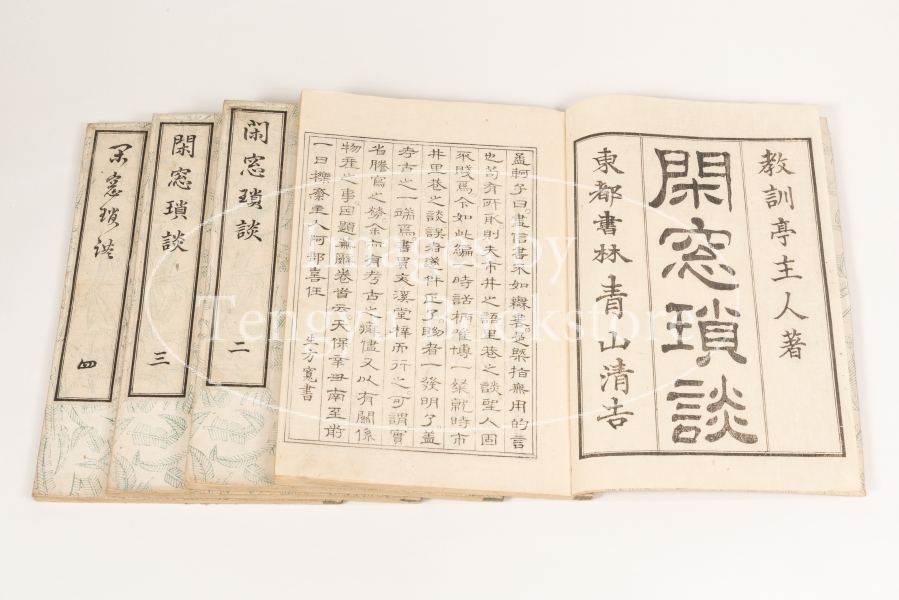 教訓亭主人著
閑窓瑣談
東都書林青山清吉
孟軻子曰。盡信書不如無書。是槩指無用的言
也。苟有所取則夫市井之語里巷之談聖人固
不賤焉。今如此編一時話柄
井里巷之談誤者
考古之一端焉。書賈文溪堂梓而行之。可謂實
省謄寫之勞。余亦有考古之癖。儘又以有關係
物産之事。因題蕪辭卷首云。天保辛丑南至前
一日櫟齋主人阿部喜任
生方寬書
閑窓瑣談
二
閑窓瑣談
三
閑窓瑣談
四
Images by
Tengyu Bookstore